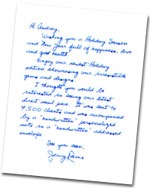 Hi Audrey,
Wishing you a Holiday Season
and New Year full of happiness, love
and good health.
Enjoy our newest Holiday
edition showcasing our irresistible
gems and designs.
I thought you would be
interested in seeing our latest
direct mail piece. It was sent to
9,500 clients and was accompanied
by a "handwritten" personalized
note in a "handwritten" addressed
envelope.
See you soon,